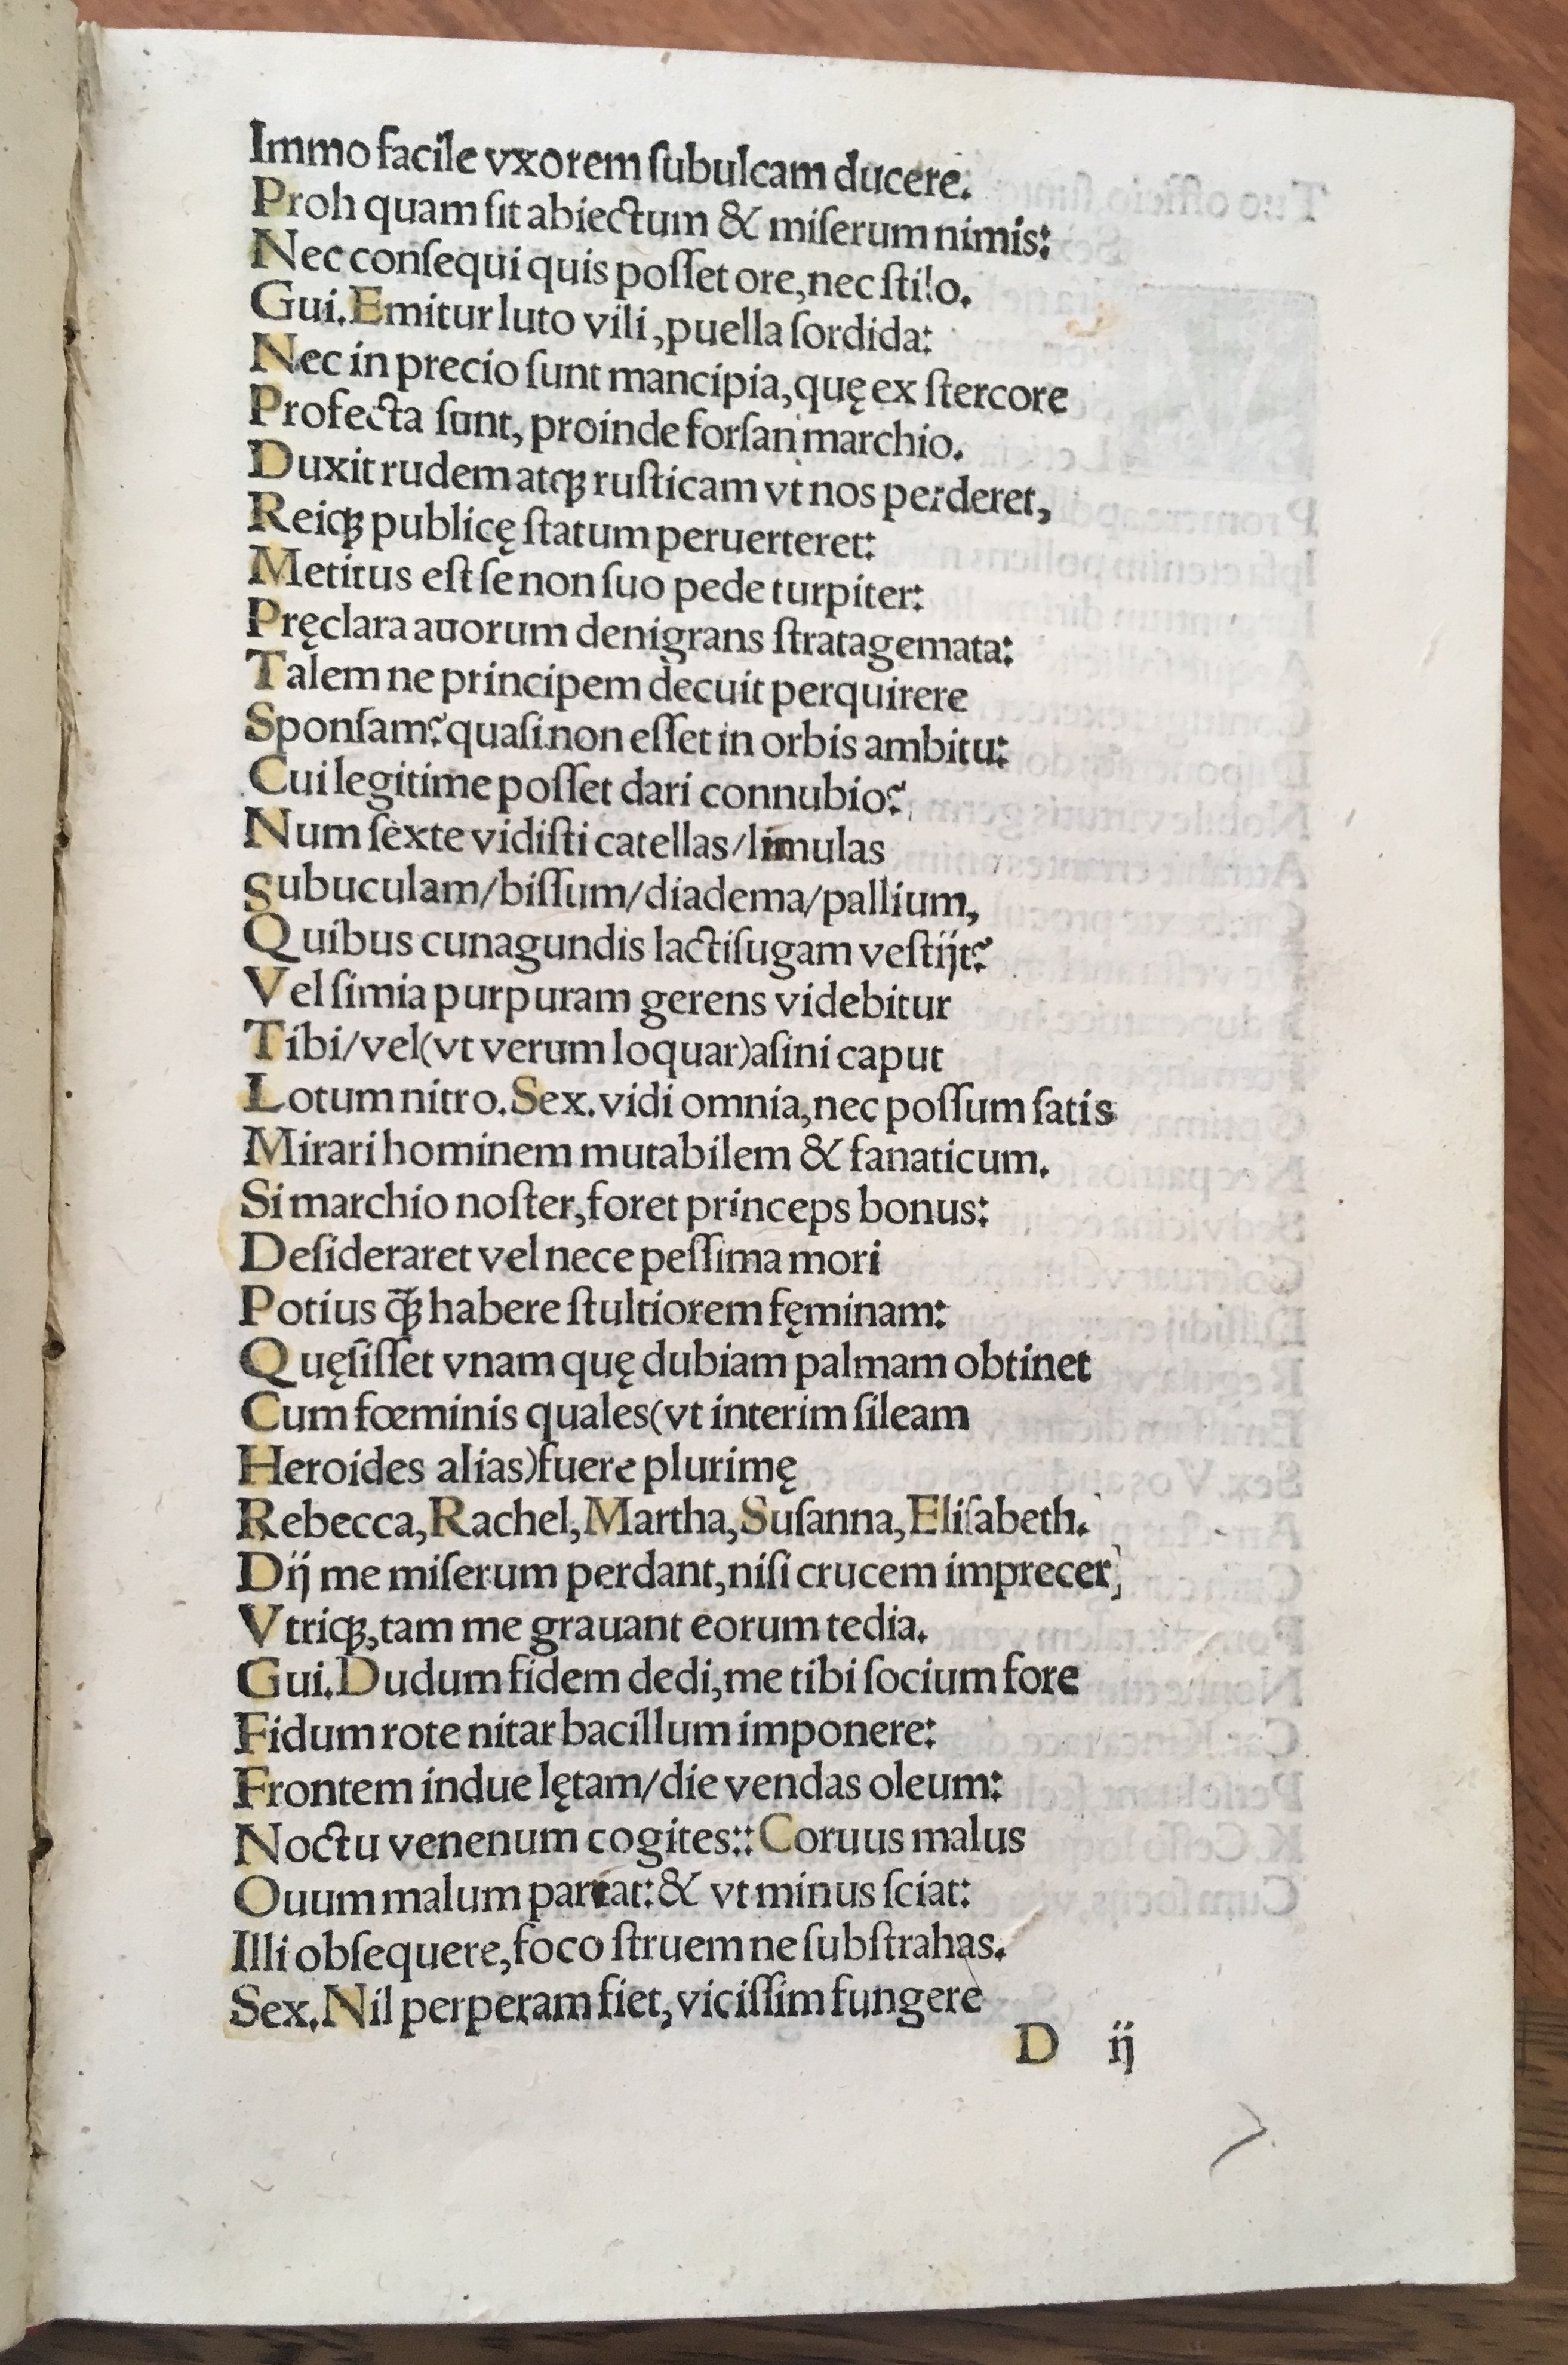 Immo facile vxorem ſubulcam ducere.
Proh quam ſit abiectum & miſerum nimis:
Nec conſequi quis poſſet ore, nec ſtilo.
Gui. Emitur luto vili, puella ſordida:
Nec in precio ſunt mancipia, quę ex ſtercore
Profecta ſunt, proinde forſan marchio.
Duxit rudem atqꝫ ruſticam vt nos perderet,
Reiqꝫ publicę ſtatum peruerteret:
Metitus eſt ſe non ſuo pede turpiter:
Pręclara auorum denigrans ſtratagemata:
Talem ne principem decuit perquirere
Sponſam? quaſi non eſſet in orbis ambitu:
Cui legitime poſſet dari connubio?
Num ſexte vidiſti catellas/limulas
Subuculam/biſſum/diadema/pallium,
Quibus cunagundis lactiſugam veſtijt?
Vel ſimia purpuram gerens videbitur
Tibi/vel(vt verum loquar)aſini caput
Lotum nitro. Sex. vidi omnia, nec poſſum ſatis
Mirari hominem mutabilem & fanaticum.
Si marchio noſter, foret princeps bonus:
Deſideraret vel nece peſſima mori
Potius q̄ꝫ habere ſtultiorem fęminam:
Quęſiſſet vnam quę dubiam palmam obtinet
Cum fœminis quales(vt interim ſileam
Heroides alias)fuere plurimę
Rebecca, Rachel, Martha, Suſanna, Eliſabeth.
Dij me miſerum perdant, niſi crucem imprecer,
Vtriqꝫ, tam me grauant eorum tedia.
Gui. Dudum fidem dedi, me tibi ſocium fore
Fidum rote nitar bacillum imponere:
Frontem indue lętam/die vendas oleum:
Noctu venenum cogites:: Coruus malus
Ouum malum pariat: & vt minus ſciat:
Illi obſequere, foco ſtruem ne ſubſtrahas.
Sex. Nil perperam fiet, viciſſim fungere
D ij